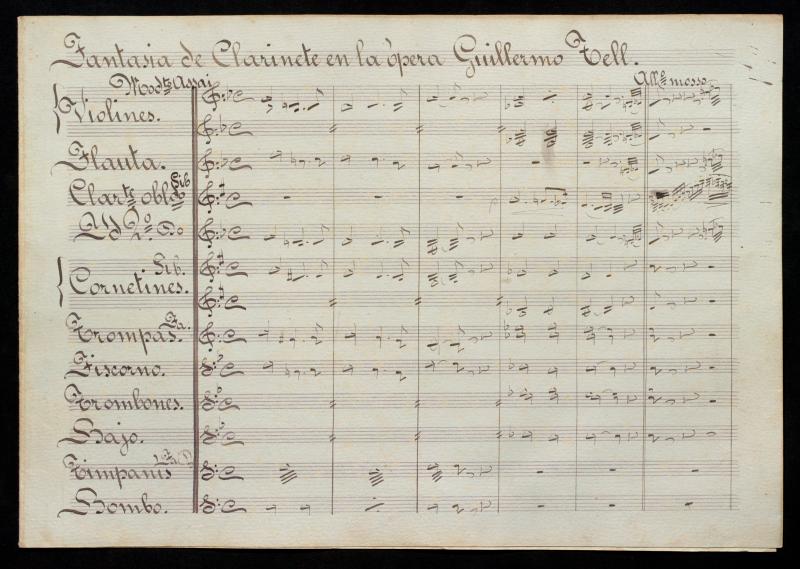 Fantasia de Clarinete en la òpera Guillermo Tell.
Modto Assai
Allo mosso
Violines.
Flauta.
Sib
Clarte oblgdo
Yd 2º. Do
Sib.
Cornetines.
Fa.
Trompas.
Fiscorno.
Trombones.
Bajo.
Timpanis
Bombo.